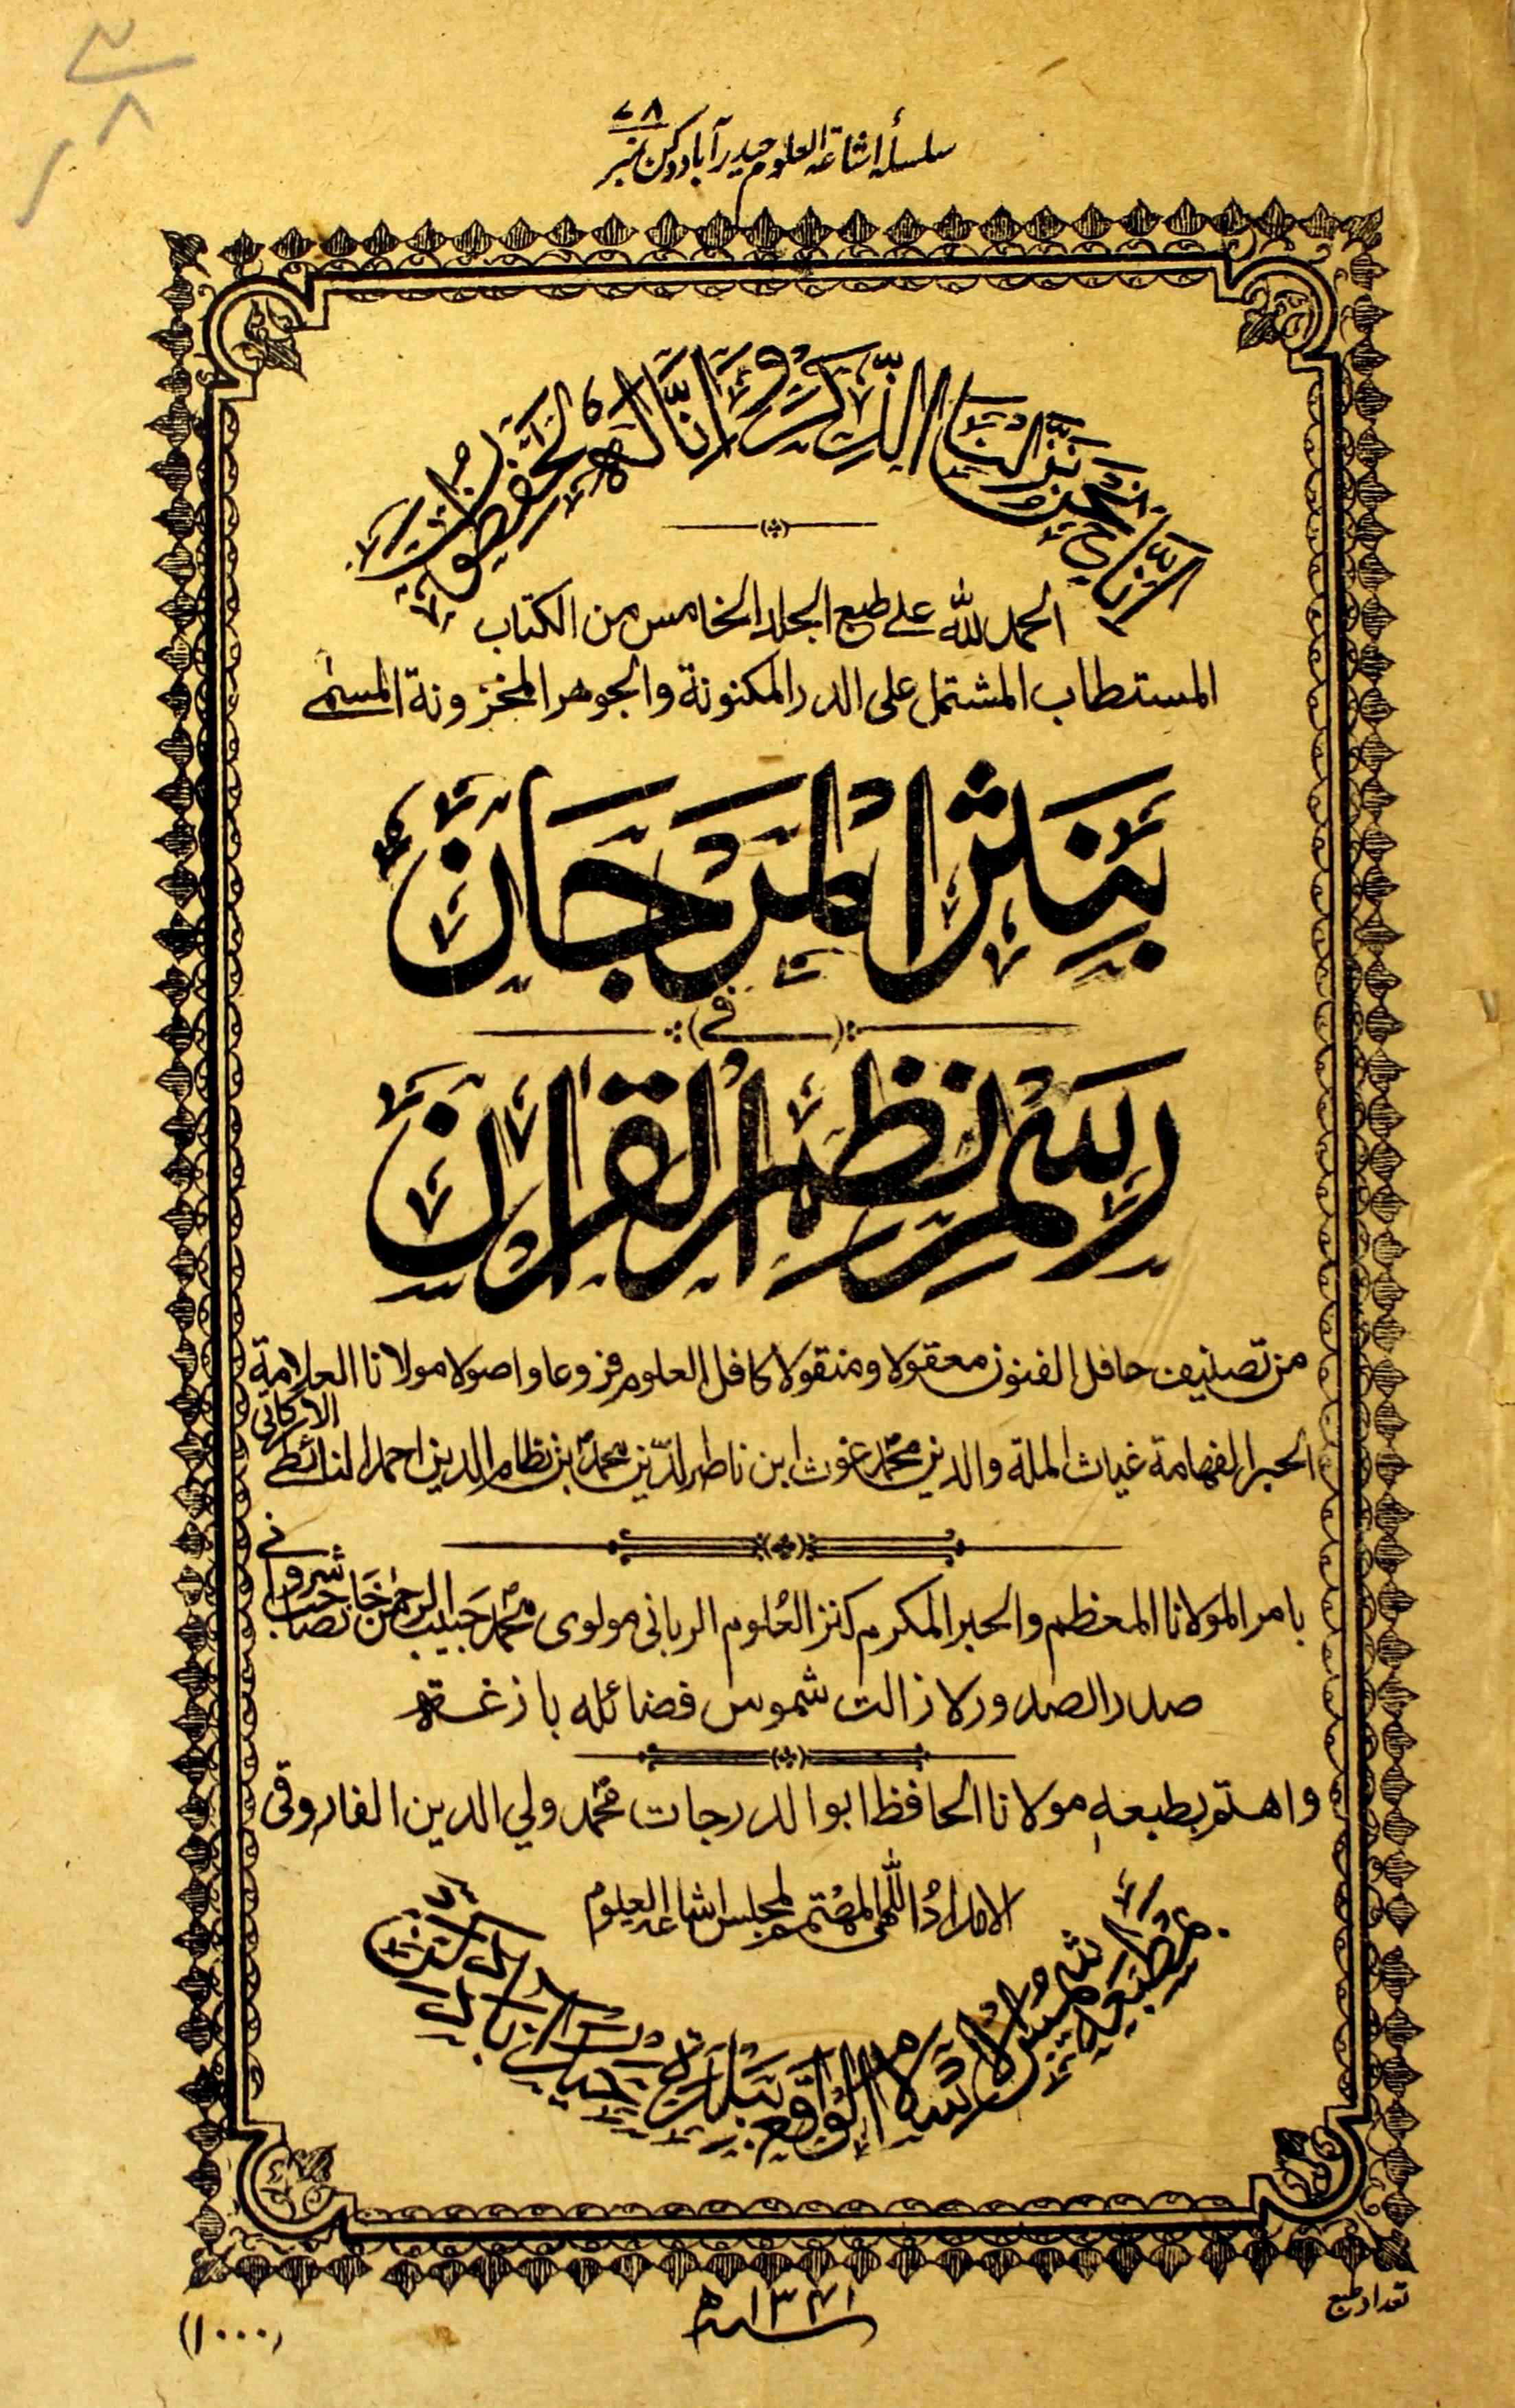 سلسلہ اشاعۃ العلوم حیدرآباد دکن نمبر ۷۸
اِنَّا نَحْنُ نَزَّلْنَا الذِّكْرَ وَاِنَّا لَهٗ لَحٰفِظُوْنَ
الحمد لله علے طبع الجلد الخامس من الكتاب
المستطاب المشتمل على الدرر المكنونة والجوهر المخزونة المسمٰى
بِنَثْرِ الْمَرْجَانِ
في
رَسْمِ نَظْمِ الْقُرْاٰنِ
من تصنيف حافل الفنون معقولا ومنقولا كافل العلوم فروعا واصولا مولانا العلامة
الحبر الفهامة غياث الملة والدين محمد غوث ابن ناصر الدين محمد ابن نظام الدين احمد النائطي الاركاتي
بامر المولانا المعظم والحبر المكرم كنز العُلوم الرباني مولوى محمد حبيب الرحمٰن خان صاحب شروانى
صدر الصدور لازالت شموس فضائله بازغة
واهتم بطبعه مولانا الحافظ ابوالدرجات محمد ولي الدين الفاروقي
الامدادُ اللّٰهى المهتمم لمجلس اشاعة العلوم
مَطبَعة شمس الاسلام الواقع ببلدة حيدراباد دكن
سنہ ۱۳۴۱ ھ
تعداد طبع
(۱۰۰۰)